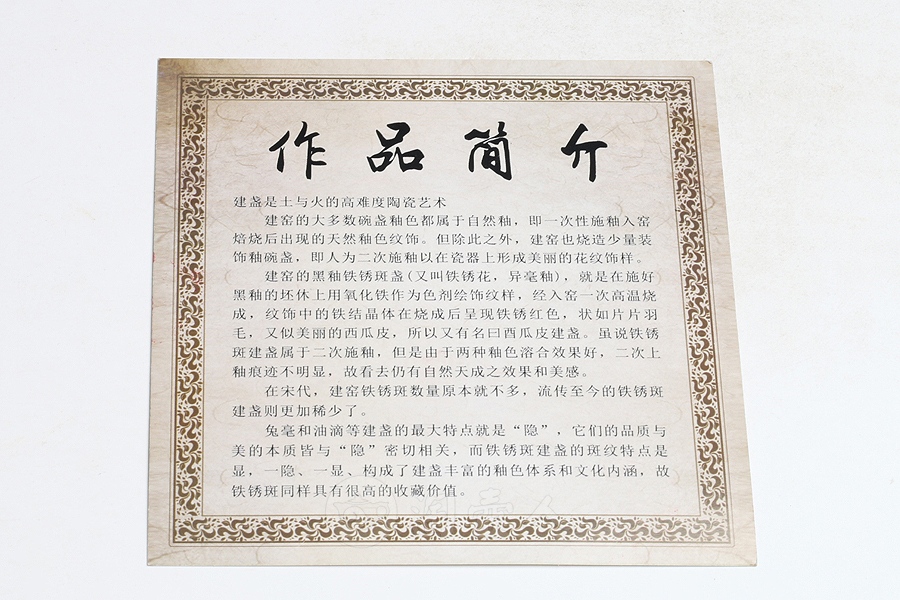 作品简介
建盏是土与火的高难度陶瓷艺术
建窑的大多数碗盏釉色都属于自然釉，即一次性施釉入窑
焙烧后出现的天然釉色纹饰。但除此之外，建窑也烧造少量装
饰釉碗盏，即人为二次施釉以在瓷器上形成美丽的花纹饰样。
建窑的黑釉铁锈斑盏(又叫铁锈花，异毫釉)，就是在施好
黑釉的坯休上用氧化铁作为色剂绘饰纹样，经入窑一次高温烧
成，纹饰中的铁结晶体在烧成后呈现铁锈红色，状如片片羽
毛，又似美丽的西瓜皮，所以又有名曰西瓜皮建盏。虽说铁锈
斑建盏属于二次施釉，但是由于两种釉色溶合效果好，二次上
釉痕迹不明显，故看去仍有自然天成之效果和美感。
在宋代，建窑铁锈斑数量原本就不多，流传至今的铁锈斑
建盏则更加稀少了。
兔毫和油滴等建盏的最大特点就是“隐”，它们的品质与
美的本质皆与“隐”密切相关，而铁锈斑建盏的斑纹特点是
显，一隐、一显、构成了建盏丰富的釉色体系和文化内涵，故
铁锈斑同样具有很高的收藏价值。